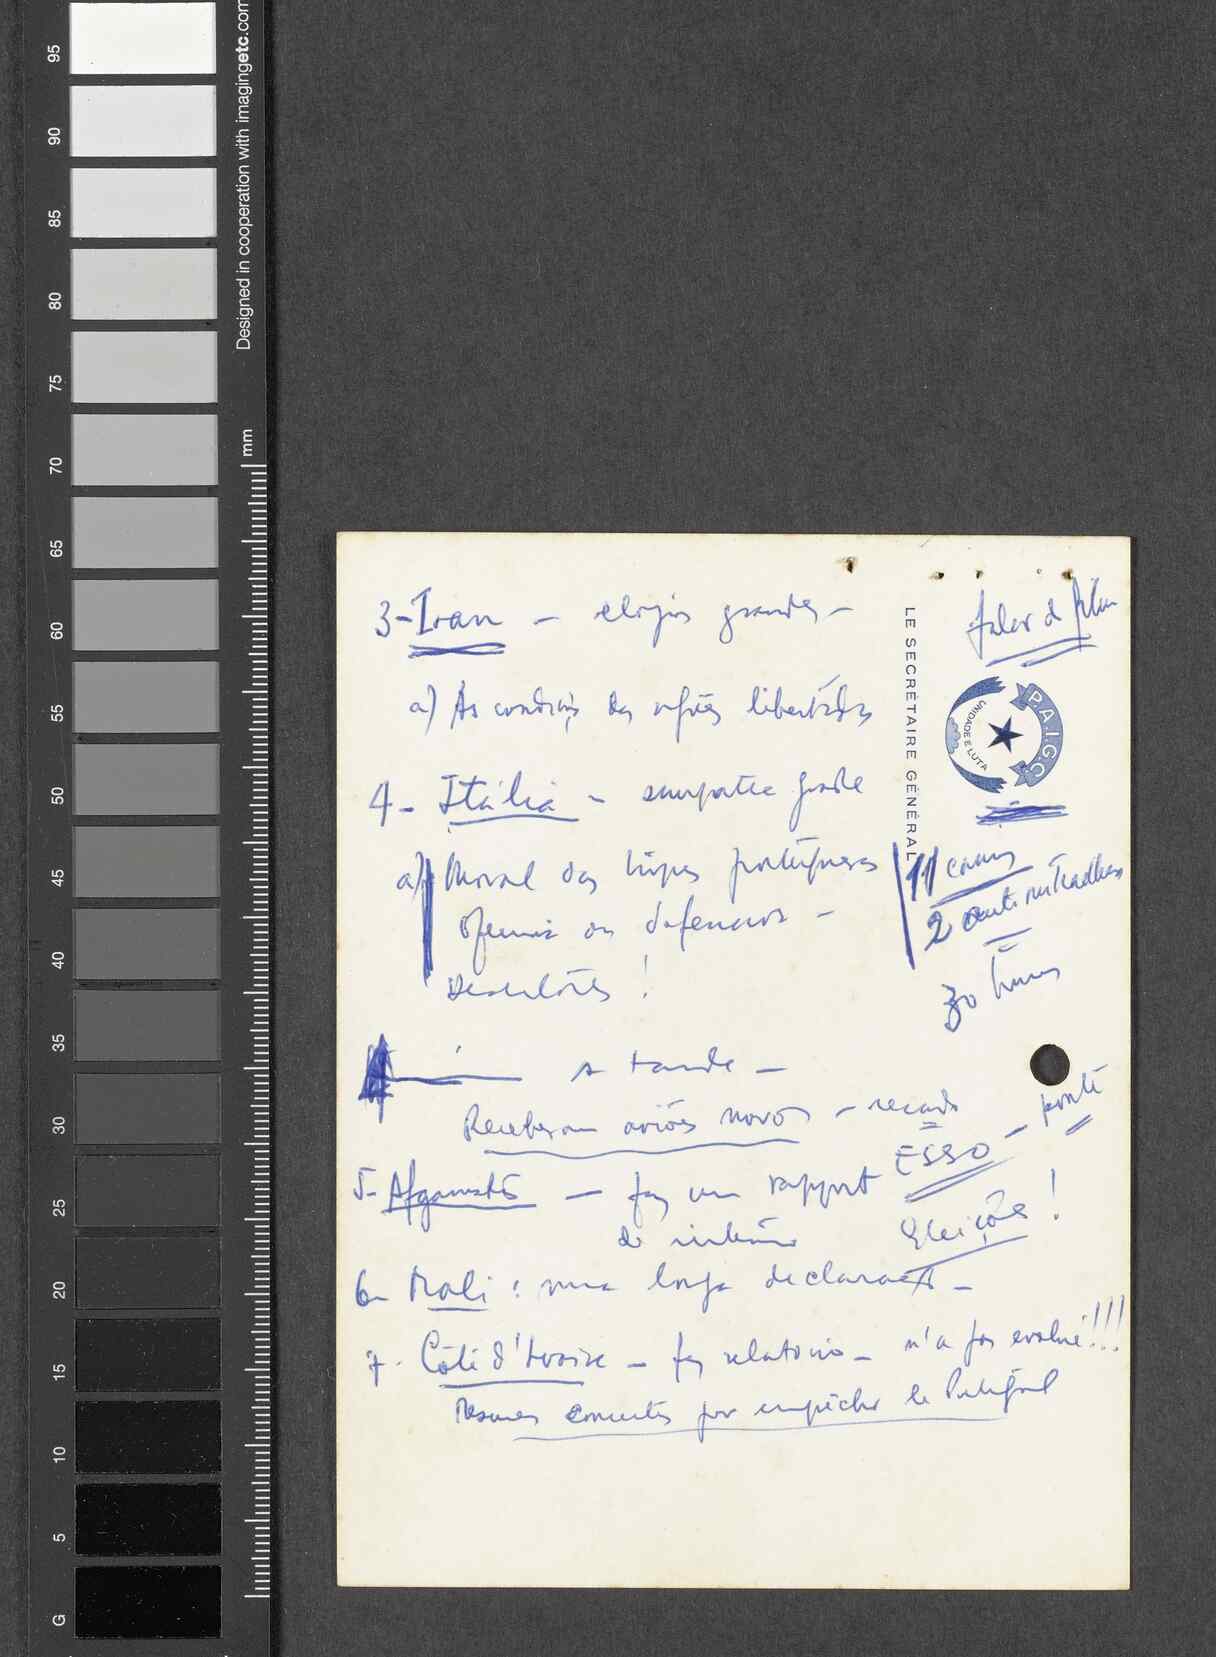 3- Iran - elogios grandes -
falar d film
a) As condições das regiões libertadas
LE SECRÉTAIRE GÉNÉRAL
P.A.I.G.C.
UNIDADE E LUTA
4- Itália - simpatia grande
a) Moral das tropas portuguesas
ofensiva ou defensiva -
Desertores !
11
2
30
a tarde -
Receberam aviões novos - recado
ESSO - ponte
5- Afganistão - faz um rapport
de
Eleições !
6- Mali : uma longa declaração -
7- Côte d'Ivoire - faz relatório - n'a pas evolué !!!
Mesures concrètes pour empêcher le Portugal
95
90
85
80
75
70
65
60
55
50
45
40
35
30
25
20
15
10
5
G
Designed in cooperation with imagingetc.com
mm